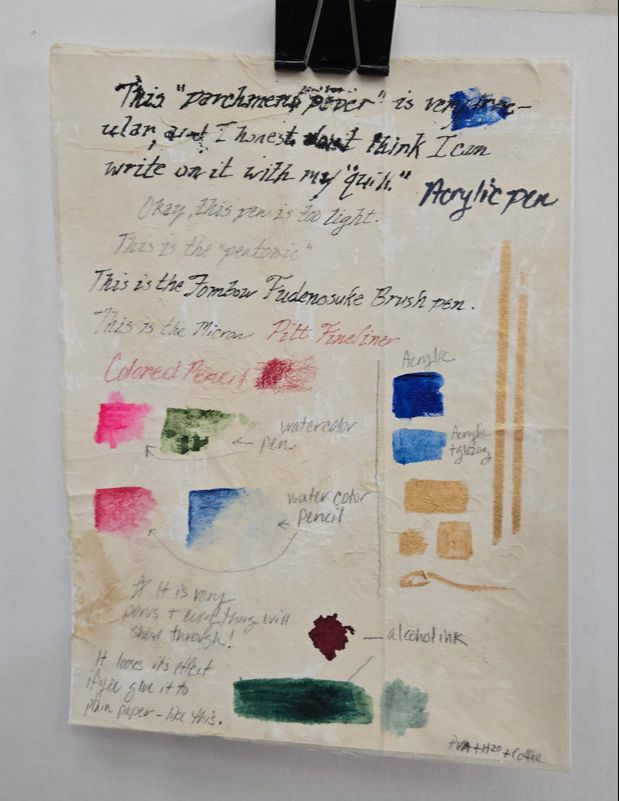 This "parchment paper" is very
ular, and I honest don't think I can
write on it with my "quill."
Acrylic pen
Okay, this pen is too light.
This is the "pentonic"
This is the Tombow Fudenosuke Brush pen.
This is the Micron Pitt Fineliner
Colored Pencil
Acrylic
watercolor
pen
Acrylic
+glazing
water color
pencil
It is very
porus + everything will
show through!
alcohol ink
It loses its effect
if you glue it to
plain paper - like this.
PVA + H20 + Coffee